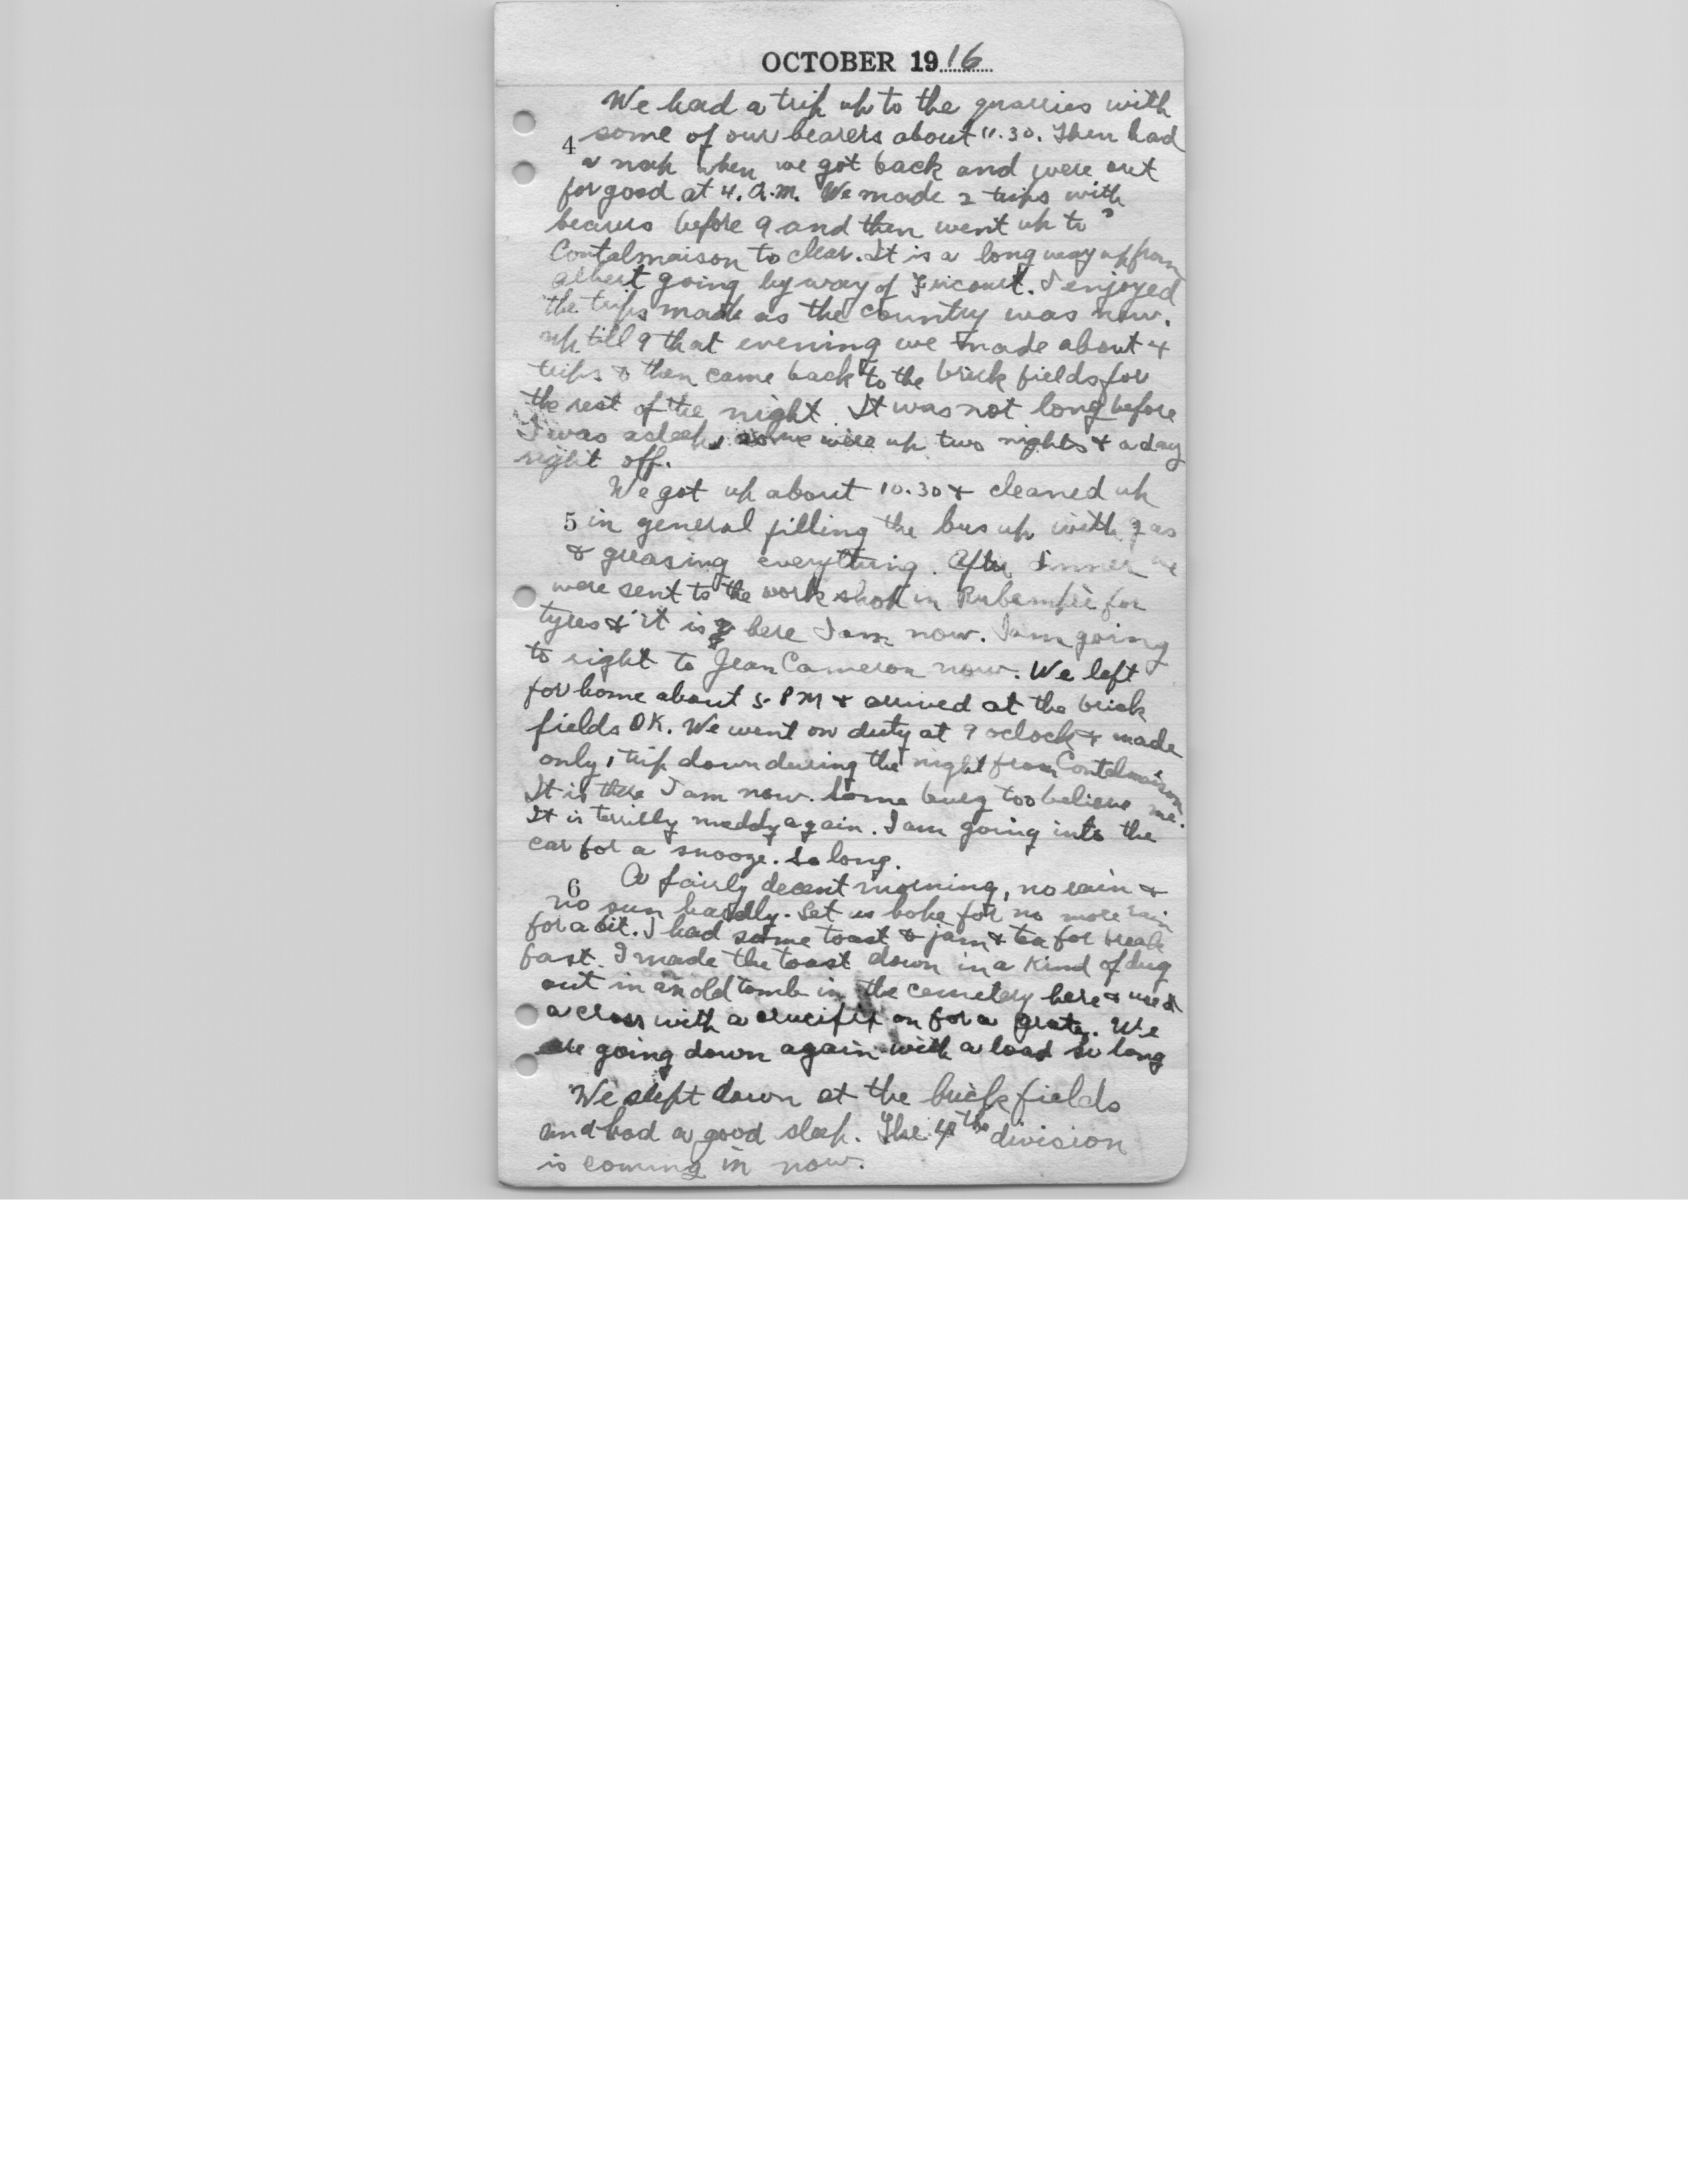 OCTOBER 1916
We had a trip up to the quarries with
4 some of our bearers about 11.30. Then had
a nap when we got back and were out
for good at 4. A.M. We made 2 trips with
bearers before 9 and then went up to
Contalmaison to clear. It is a long way up from
Albert going by way of Fricourt. I enjoyed
the trips made as the country was new.
up till 9 that evening we made about 4
trips & then came back to the brick fields for
the rest of the night. It was not long before
I was asleep, some were up two nights & a day
right off.
We got up about 10.30 & cleaned up
5 in general filling the bus up with gas
& greasing everything. After dinner we
were sent to the work shop in Rubempré for
tyres & it is here I am now. I am going
to right to Jean Cameron now. We left
for home about 5 PM & arrived at the brick
fields OK. We went on duty at 9 oclock & made
only 1 trip down during the night from Contalmaison
It is there I am now. Some burg too believe me.
It is terribly muddy again. I am going into the
car for a snooze. So long.
6 A fairly decent morning, no rain &
no sun hardly. Let us hope for no more rain
for a bit. I had some toast & jam & tea for break
fast. I made the toast down in a kind of dug
out in an old tomb in the cemetery here & used
a cross with a crucifix on for a grate. We
are going down again with a load so long
We slept down at the brick fields
and had a good sleep. The 4th division
is coming in now.